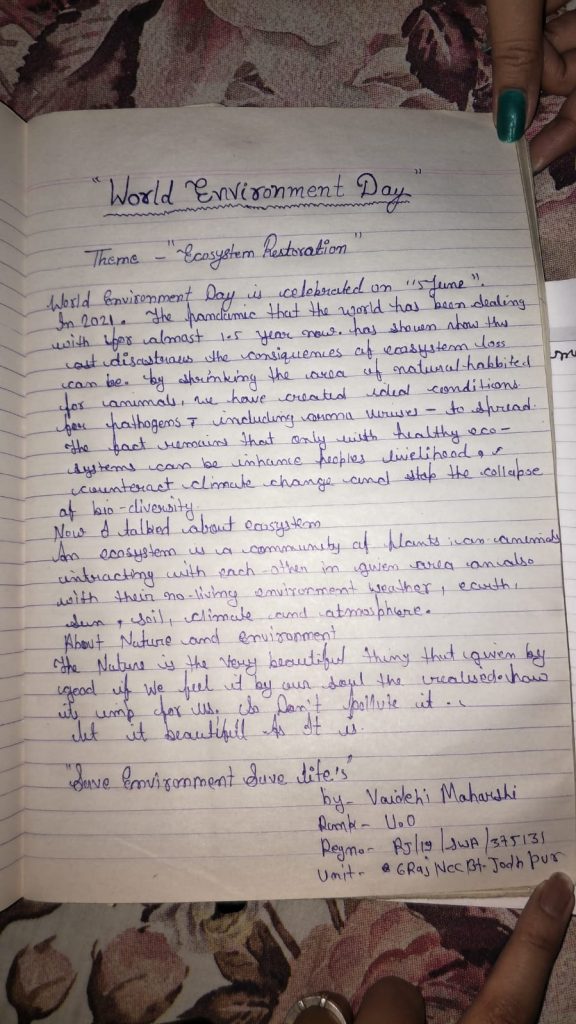 "World Environment Day"
Theme - "Ecosystem Restoration"
World Environment Day is celebrated on "5 June".
In 2021. The pandamic that the world has been dealing
with for almost 1.5 year now. has shown how the
disastraus the consiquences of ecosystem loss
can be. by shrinking the area of natural habbited
for animals, we have created ideal conditions
for pathogens - including corona viruses - to spread.
The fact remains that only with healthy eco-
systems can be inhance peoples livelihood,
counteract climate change and stop the collapse
of bio-diversity.
Now I talked about ecosystem
An ecosystem is a community of plants
intracting with each-other in given area an also
with their no-living environment weather, earth,
sun, soil, climate and atmosphere.
About Nature and environment
The Nature is the very beautiful thing that given by
good if we feel it by our soul the how
its imp for us. So Don't pollute it..
let it beautifull As It is.
"Save Environment Save life's"
by- Vaidehi Maharshi
Rank - U.O
Regno- RJ/19/SWA/375131
Unit- 6 Raj Ncc Bt- Jodhpur